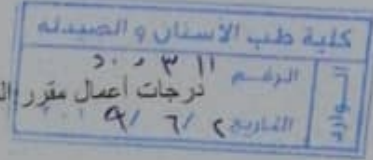 كلية طب الاسنان و الصيدله
الوارد
الرقم
درجات أعمال مقرر
التاريخ ٢ / ٦ / ٩